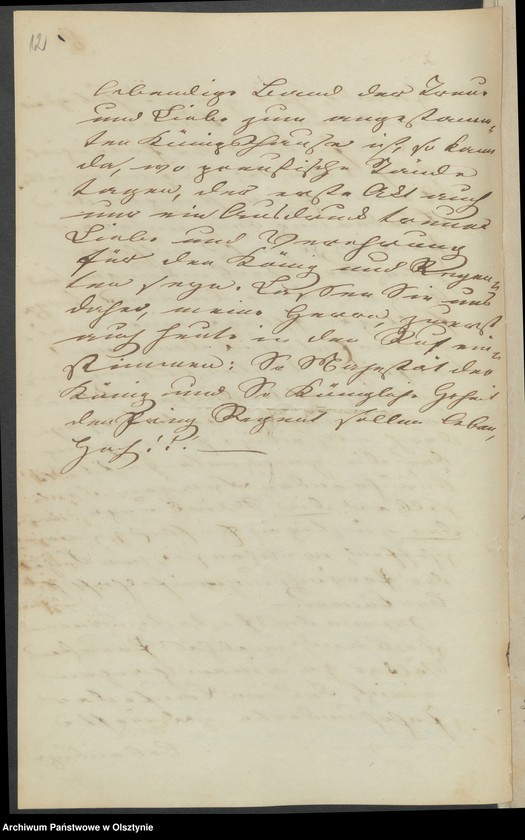 12
lebendige Band der Treue
und Liebe zum angestamm-
ten Königshause ist, so kann
da, wo preußische Stände
tagen, der erste Akt auch
nur ein Ausdruck treuer
Liebe und Verehrung
für den König und Regen-
ten seyn. Lassen Sie uns
daher, meine Herrn, zuerst
auch heute in den Ruf ein-
stimmen: Se Majestät der
König und Se Königliche Hoheit
der Prinz Regent sollen leben,
Hoch!!! —
Archiwum Państwowe w Olsztynie